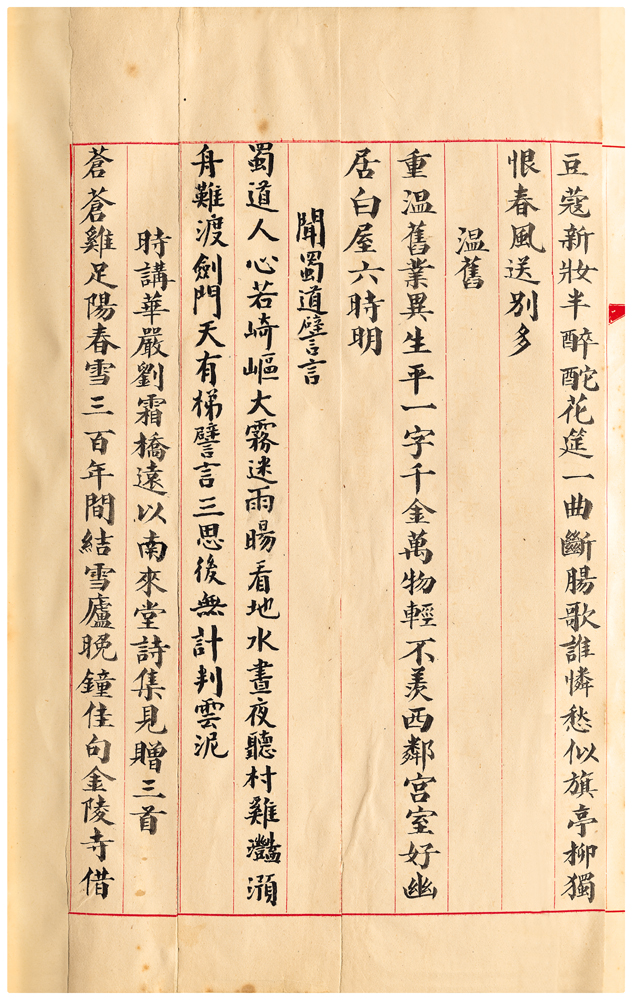 豆蔻新妝半醉酡花筵一曲斷腸歌誰憐愁似旗亭柳獨
恨春風送別多
温舊
重温舊業異生平一字千金萬物輕不羨西鄰宫室好幽
居白屋六時明
聞蜀道譬言
蜀道人心若崎嶇大霧迷雨暘看地水晝夜聽村雞灩澦
舟難渡劍門天有梯譬言三思後無計判雲泥
時講華嚴劉霜橋遠以南來堂詩集見贈三首
蒼蒼雞足陽春雪三百年間結雪廬晚鐘佳句金陵寺借